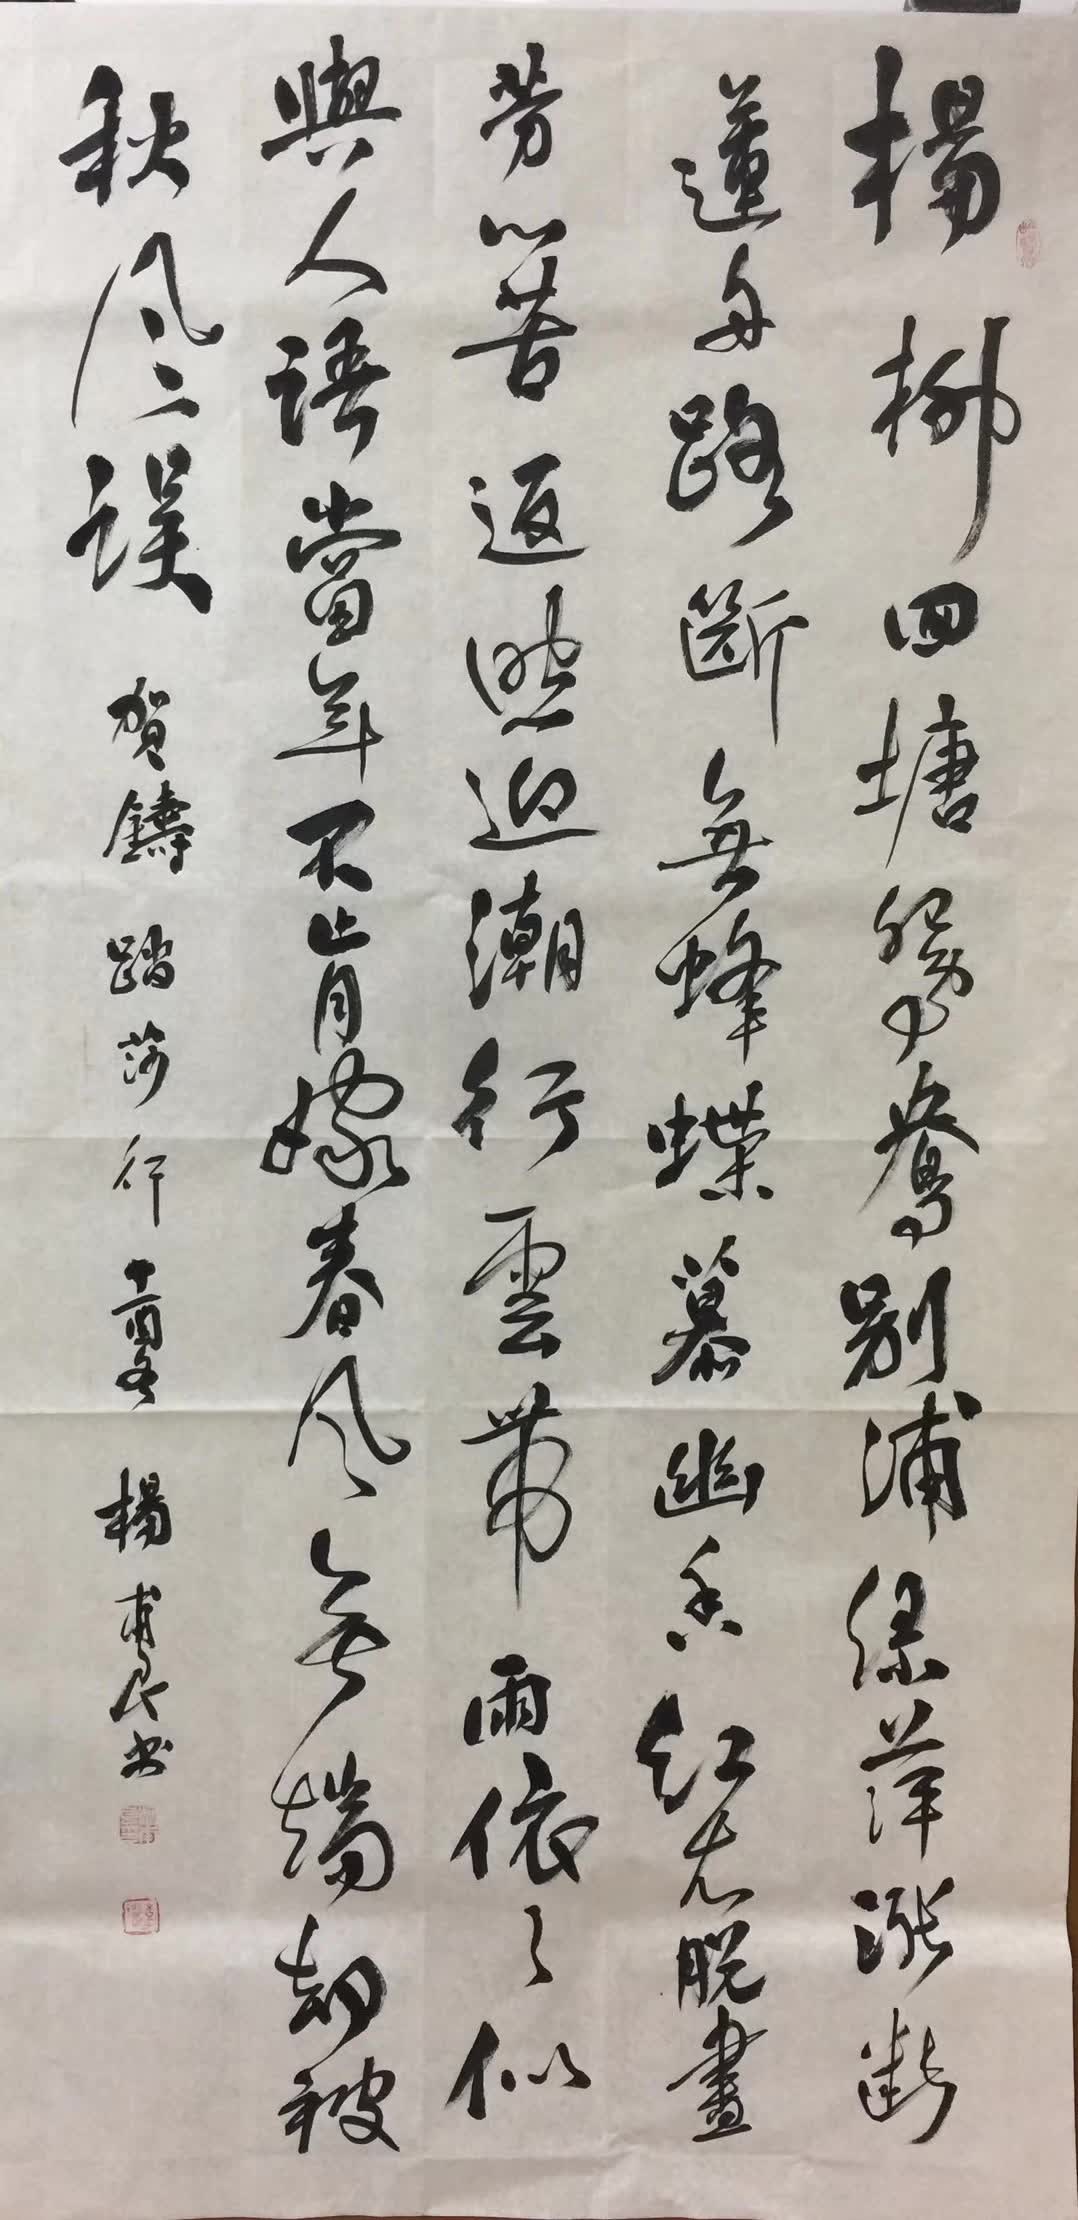 楊柳回塘鴛鴦別浦綠萍漲斷
蓮舟路斷無蜂蝶慕幽香紅衣脫盡
芳心苦返照迎潮行雲帶雨依々似
與人語當年不肯嫁春風無端却被
秋風誤 賀鑄 踏莎行 丁酉冬 楊甫良书